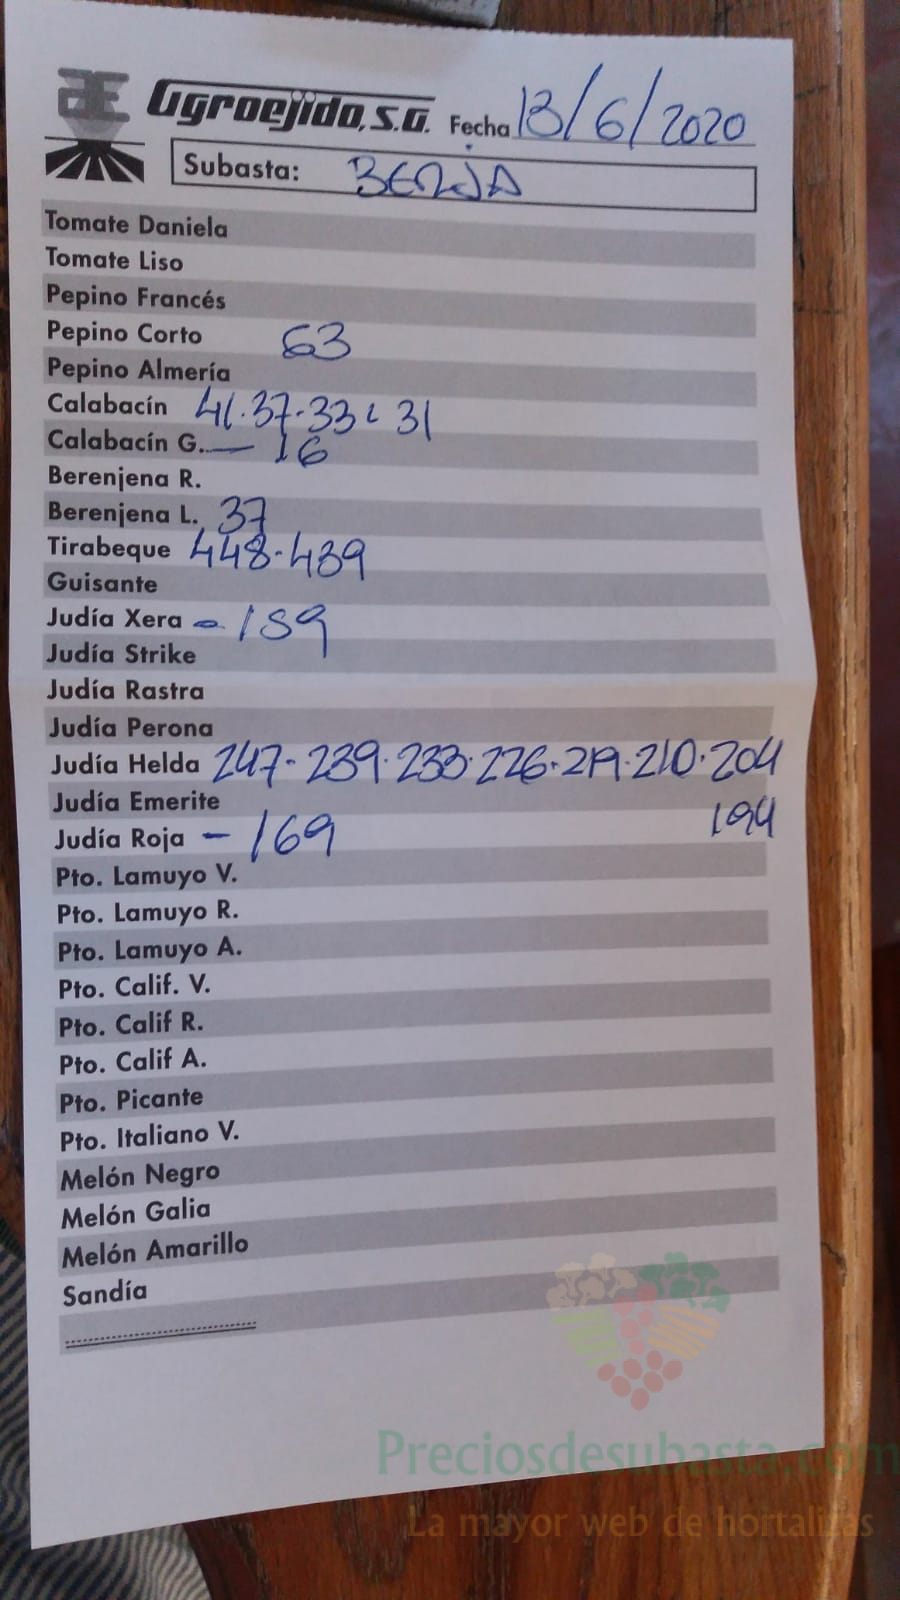 Agroejido, S.A. Fecha 13/6/2020
Subasta: BERJA
Tomate Daniela
Tomate Liso
Pepino Francés
Pepino Corto 63
Pepino Almería
Calabacín 41·37·33 L 31
Calabacín G. — 16
Berenjena R.
Berenjena L. 37
Tirabeque 448·439
Guisante
Judía Xera - 159
Judía Strike
Judía Rastra
Judía Perona
Judía Helda 247·239·233·226·219·210·204
Judía Emerite 194
Judía Roja - 169
Pto. Lamuyo V.
Pto. Lamuyo R.
Pto. Lamuyo A.
Pto. Calif. V.
Pto. Calif R.
Pto. Calif A.
Pto. Picante
Pto. Italiano V.
Melón Negro
Melón Galia
Melón Amarillo
Sandía
Preciosdesubasta.com
La mayor web de hortalizas